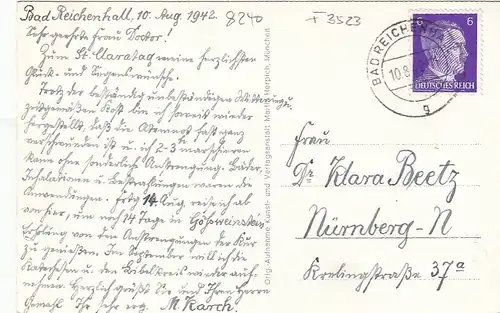 Bad Reichenhall, 10. Aug. 1942.
8240
F 3523
Sehr geehrte Frau Doctor!
Zum St. Claratag meine herzlichsten
Glück- und Segenswünsche.
Trotz der beständig unbeständigen Witterung u.
zeitgemäßen Kost bin ich soweit wieder
hergestellt, daß die Atemnot fast ganz
verschwunden ist u. ich 2-3 marschieren
kann ohne sonderliche Anstrengung. Bäder,
Inhalationen u. Bestrahlungen waren die
Anwendungen. Frtg 14 Aug. reise ich ab
von hier, um noch 14 Tage in Gößweinstein
Erholung von den Anstrengungen der Kur
zu genießen. Im September will ich die
Katechesen u. den Bibelkreis wieder auf-
nehmen. Herzlich grüßt Sie und Ihren Herrn
Gemahl Ihr sehr erg. M. Karch.
Orig.-Aufnahme Kunst- und Verlagsanstalt Martin Herpich, München
BAD REICHEN
10.8.
g
6 6
DEUTSCHES REICH
Frau
Dr Klara Beetz
Nürnberg-N
Krelingstraße 37a